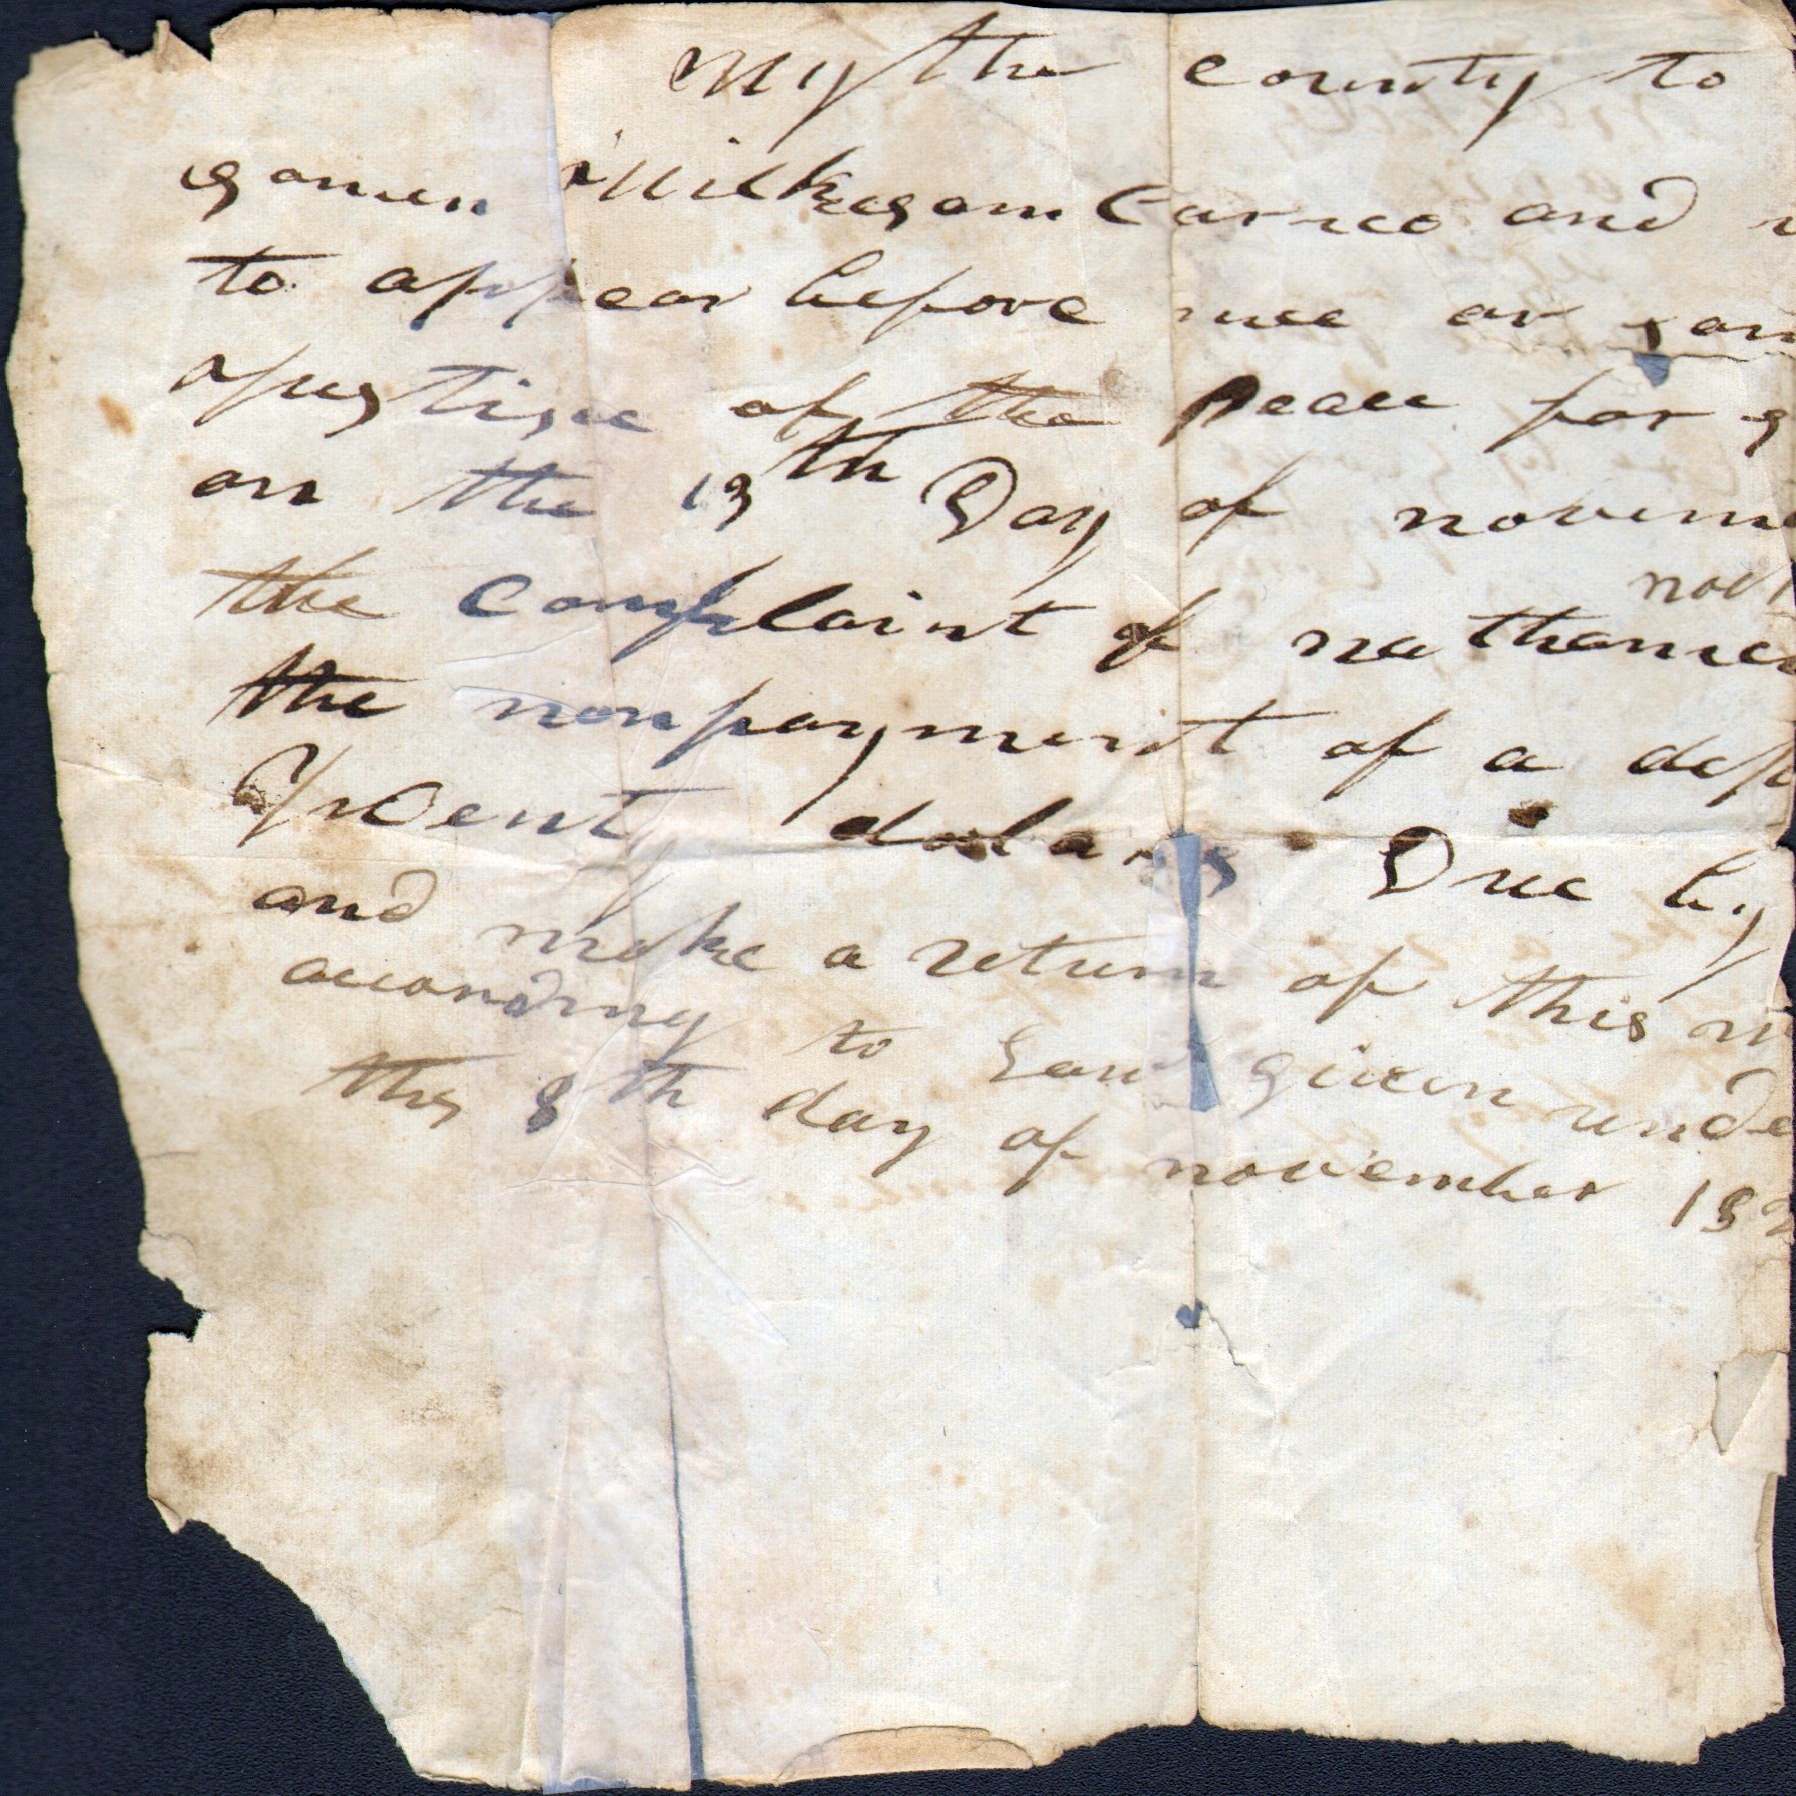 Wythe county to
somen Wilkeson Carrico and
to appear before mee or som
a justice of the peace for s
on the 13th Day of novem
novr
the complaint of nathaniel
the nonpayment of a de
dolars Due by
and make a return of this
according to Law given unde
ths 8th day of november 182